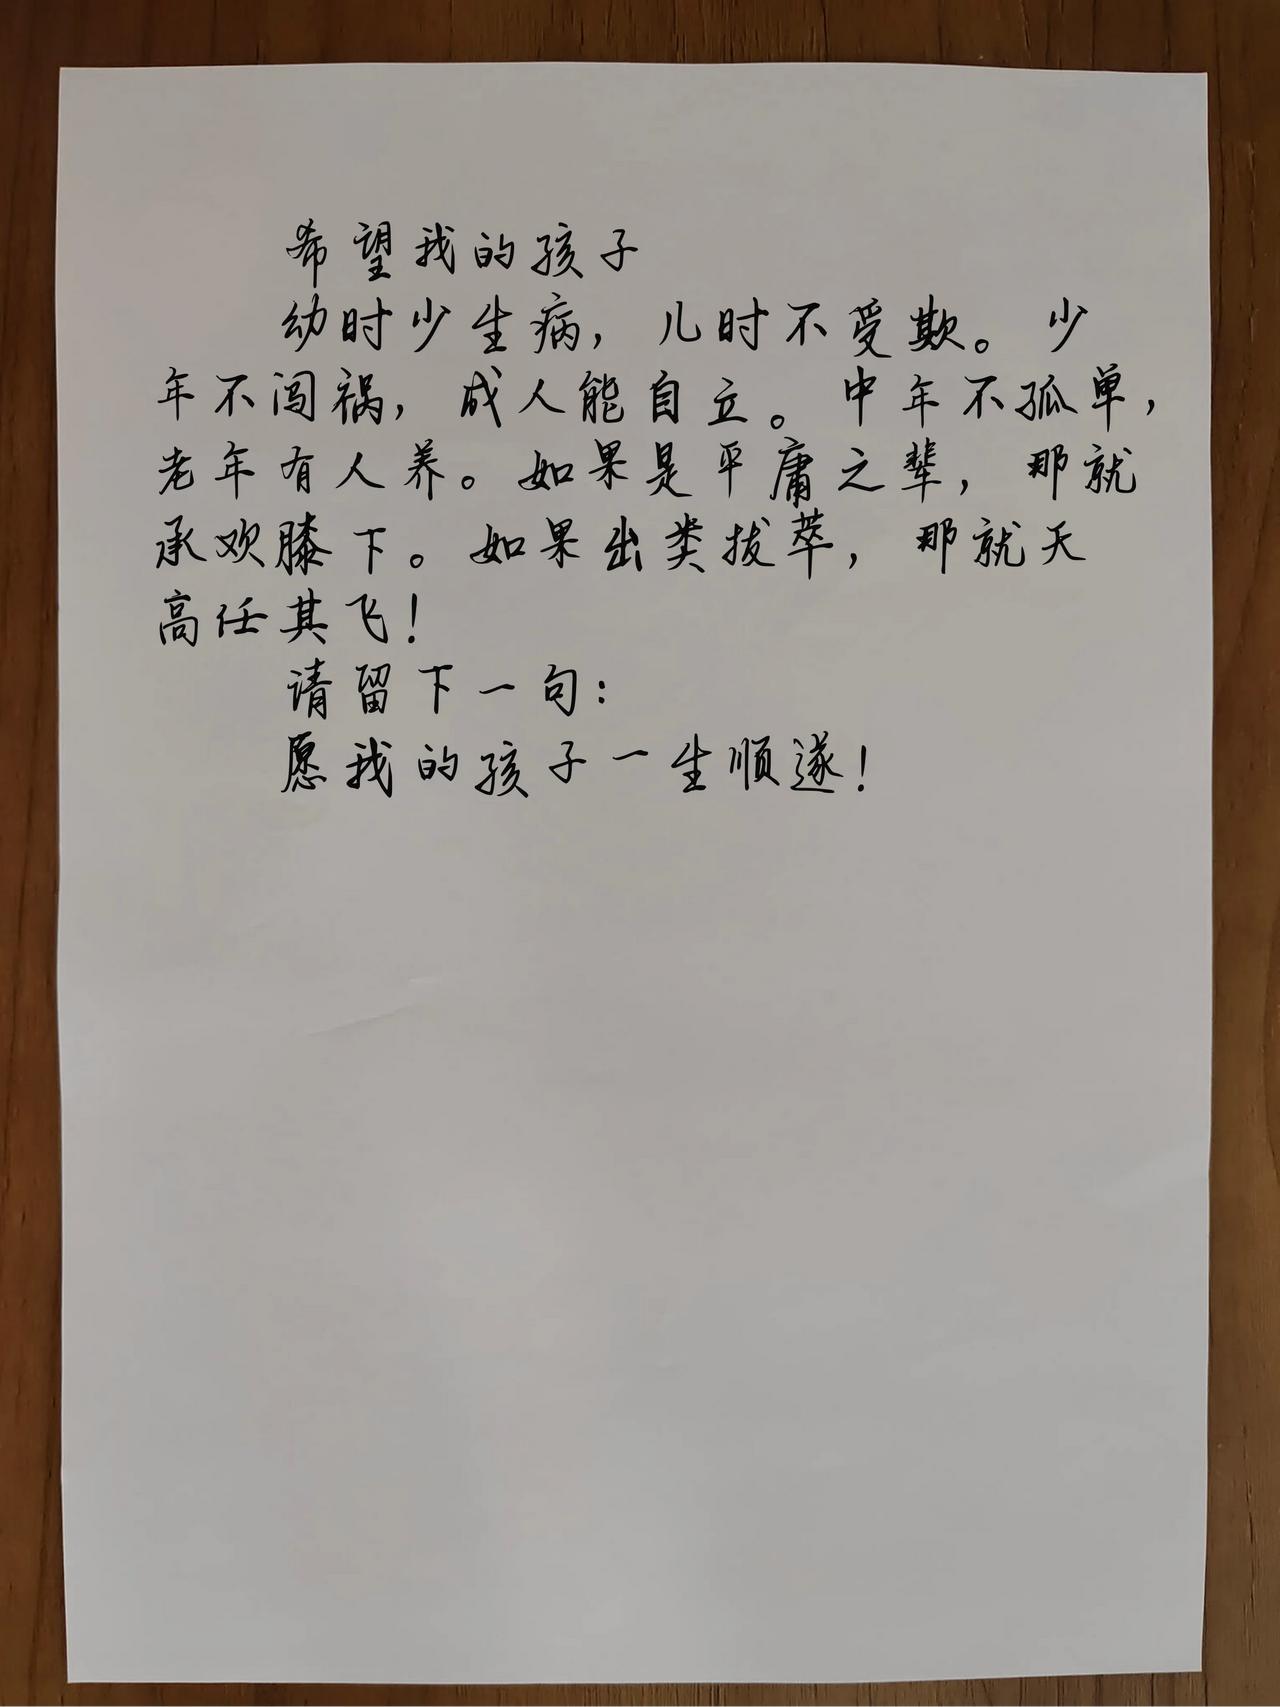 希望我的孩子
幼时少生病，儿时不受欺。少
年不闯祸，成人能自立。中年不孤单，
老年有人养。如果是平庸之辈，那就
承欢膝下。如果出类拔萃，那就天
高任其飞！
请留下一句：
愿我的孩子一生顺遂！